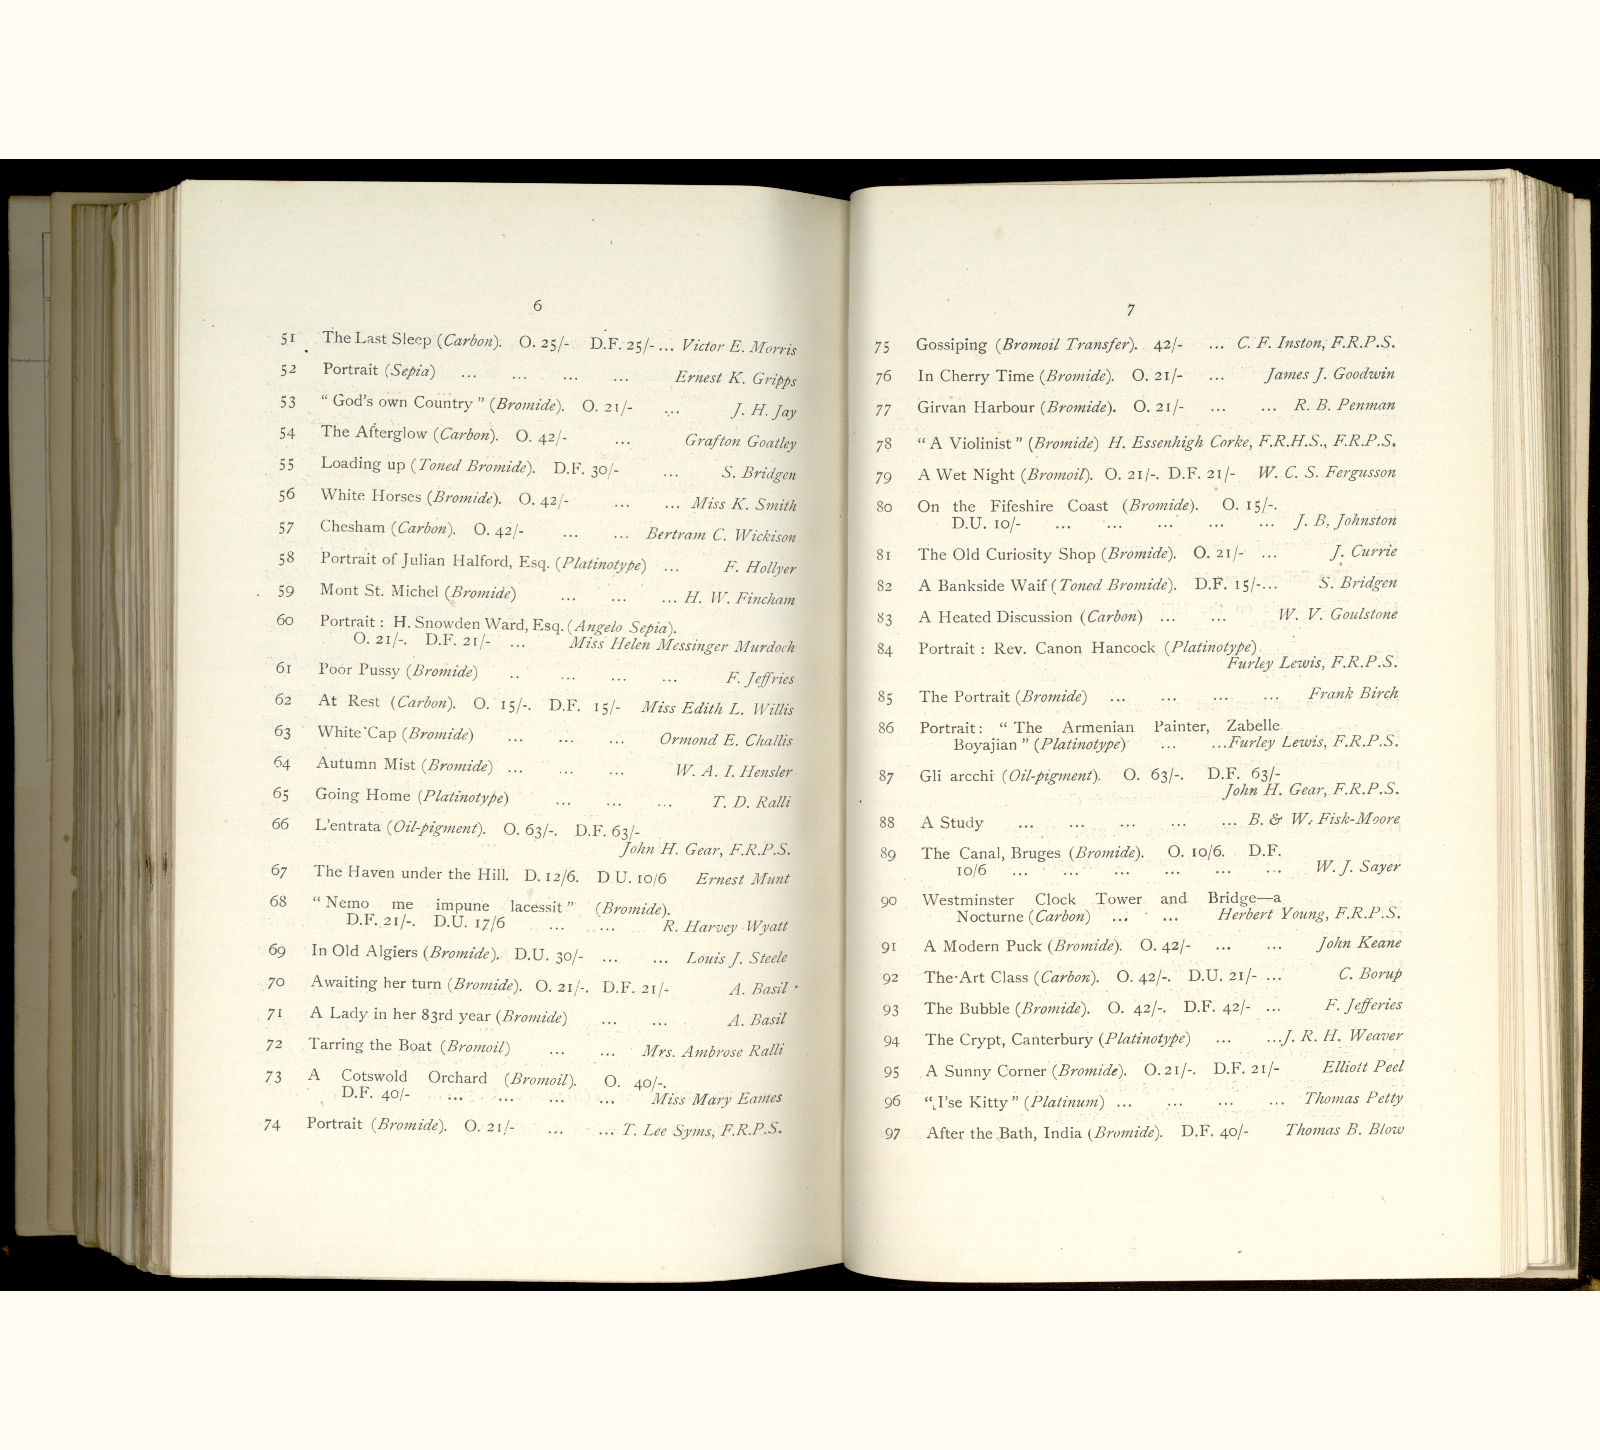 6
51 The Last Sleep (Carbon). O. 25/- D.F. 25/- ... Victor E. Morris
52 Portrait (Sepia) ... ... ... ... Ernest K. Gripps
53 “ God's own Country ” (Bromide). O. 21/- ... J. H. Jay
54 The Afterglow (Carbon). O. 42/- ... Grafton Goatley
55 Loading up (Toned Bromide). D.F. 30/- ... S. Bridgen
56 White Horses (Bromide). O. 42/- ... ... Miss K. Smith
57 Chesham (Carbon). O. 42/- ... ... Bertram C. Wickison
58 Portrait of Julian Halford, Esq. (Platinotype) ... F. Hollyer
59 Mont St. Michel (Bromide) ... ... ... H. W. Fincham
60 Portrait : H. Snowden Ward, Esq. (Angelo Sepia).
O. 21/-. D.F. 21/- ... Miss Helen Messinger Murdoch
61 Poor Pussy (Bromide) .. ... ... ... F. Jeffries
62 At Rest (Carbon). O. 15/-. D.F. 15/- Miss Edith L. Willis
63 White Cap (Bromide) ... ... ... Ormond E. Challis
64 Autumn Mist (Bromide) ... ... ... W. A. I. Hensler
65 Going Home (Platinotype) ... ... ... T. D. Ralli
66 L'entrata (Oil-pigment). O. 63/-. D.F. 63/-
John H. Gear, F.R.P.S.
67 The Haven under the Hill. D. 12/6. D U. 10/6 Ernest Munt
68 “ Nemo me impune lacessit ” (Bromide).
D.F. 21/-. D.U. 17/6 ... ... R. Harvey Wyatt
69 In Old Algiers (Bromide). D.U. 30/- ... ... Louis J. Steele
70 Awaiting her turn (Bromide). O. 21/-. D.F. 21/- A. Basil
71 A Lady in her 83rd year (Bromide) ... ... A. Basil
72 Tarring the Boat (Bromoil) ... ... Mrs. Ambrose Ralli
73 A Cotswold Orchard (Bromoil). O. 40/-.
D.F. 40/- ... ... ... ... Miss Mary Eames
74 Portrait (Bromide). O. 21/- ... ... T. Lee Syms, F.R.P.S.
7
75 Gossiping (Bromoil Transfer). 42/- ... C. F. Inston, F.R.P.S.
76 In Cherry Time (Bromide). O. 21/- ... James J. Goodwin
77 Girvan Harbour (Bromide). O. 21/- ... ... R. B. Penman
78 “ A Violinist ” (Bromide) H. Essenhigh Corke, F.R.H.S., F.R.P.S.
79 A Wet Night (Bromoil). O. 21/-. D.F. 21/- W. C. S. Fergusson
80 On the Fifeshire Coast (Bromide). O. 15/-.
D.U. 10/- ... ... ... ... ... J. B. Johnston
81 The Old Curiosity Shop (Bromide). O. 21/- ... J. Currie
82 A Bankside Waif (Toned Bromide). D.F. 15/-... S. Bridgen
83 A Heated Discussion (Carbon) ... ... W. V. Goulstone
84 Portrait : Rev. Canon Hancock (Platinotype)
Furley Lewis, F.R.P.S.
85 The Portrait (Bromide) ... ... ... ... Frank Birch
86 Portrait : “ The Armenian Painter, Zabelle
Boyajian ” (Platinotype) ... ...Furley Lewis, F.R.P.S.
87 Gli arcchi (Oil-pigment). O. 63/-. D.F. 63/-
John H. Gear, F.R.P.S.
88 A Study ... ... ... ... ... B. & W. Fisk-Moore
89 The Canal, Bruges (Bromide). O. 10/6. D.F.
10/6 ... ... ... ... ... ... W. J. Sayer
90 Westminster Clock Tower and Bridge—a
Nocturne (Carbon) ... ... Herbert Young, F.R.P.S.
91 A Modern Puck (Bromide). O. 42/- ... ... John Keane
92 The Art Class (Carbon). O. 42/-. D.U. 21/- ... C. Borup
93 The Bubble (Bromide). O. 42/-. D.F. 42/- ... F. Jefferies
94 The Crypt, Canterbury (Platinotype) ... ...J. R. H. Weaver
95 A Sunny Corner (Bromide). O. 21/-. D.F. 21/- Elliott Peel
96 “ I'se Kitty ” (Platinum) ... ... ... ... Thomas Petty
97 After the Bath, India (Bromide). D.F. 40/- Thomas B. Blow